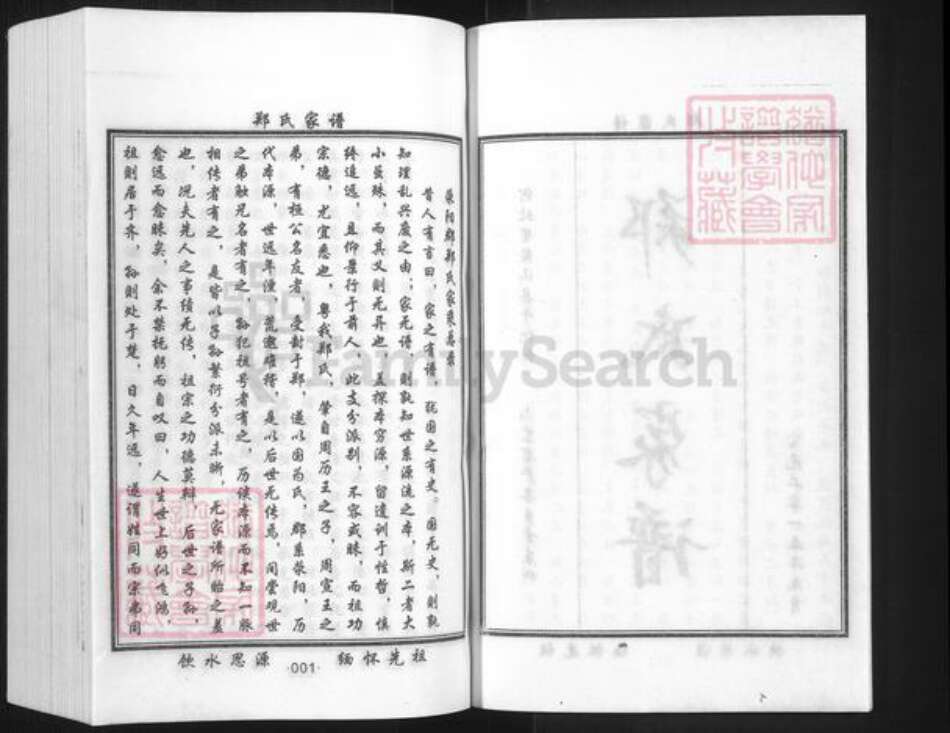 郑氏家谱
荥阳郡郑氏家乘总序
昔人有言曰，家之有谱，犹国之有史。国无史，则孰
知理乱兴废之由；家无谱，则孰知世系源流之本，斯二者大
小虽殊，而其义则无异也。盖探本穷源，留遗训于性哲，慎
终追远，且仰景行于前人，此支分派别，不容或昧，而祖功
宗德，尤宜悉也，粤我郑氏，肇自周历王之子，周宣王之
弟，有桓公名友者，受封于郑，遂以国为氏，郡系荥阳，历
代本源，世远年湮，荒邈难稽，是以后世无传焉，间尝观世
之弟触兄名者有之，孙犯祖号者有之，历读本源而不知一脉
相传者有之，是皆以子孙繁衍分派未晰，无家谱所贻之羞
也，况夫先人之事绩无传，祖宗之功德莫辩，后世之子孙，
愈远而愈昧矣，余不禁抚躬而自叹曰，人生世上好似飞鸿，
祖则居于齐，孙则处于楚，日久年远，遂谓姓同而宗弗同
饮水思源
·001·
缅怀先祖
FamilySearch